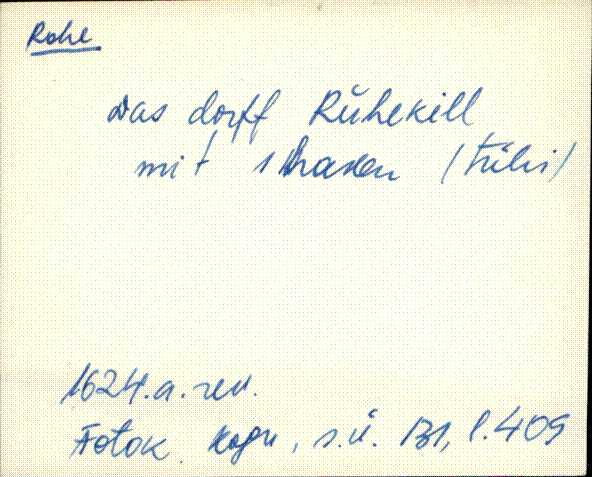 Rohe
Das dorff Rühekill
mit 1 haken (tühi)
1624.a. rev.
Fotok. kogu, s.ü. 131, l. 409